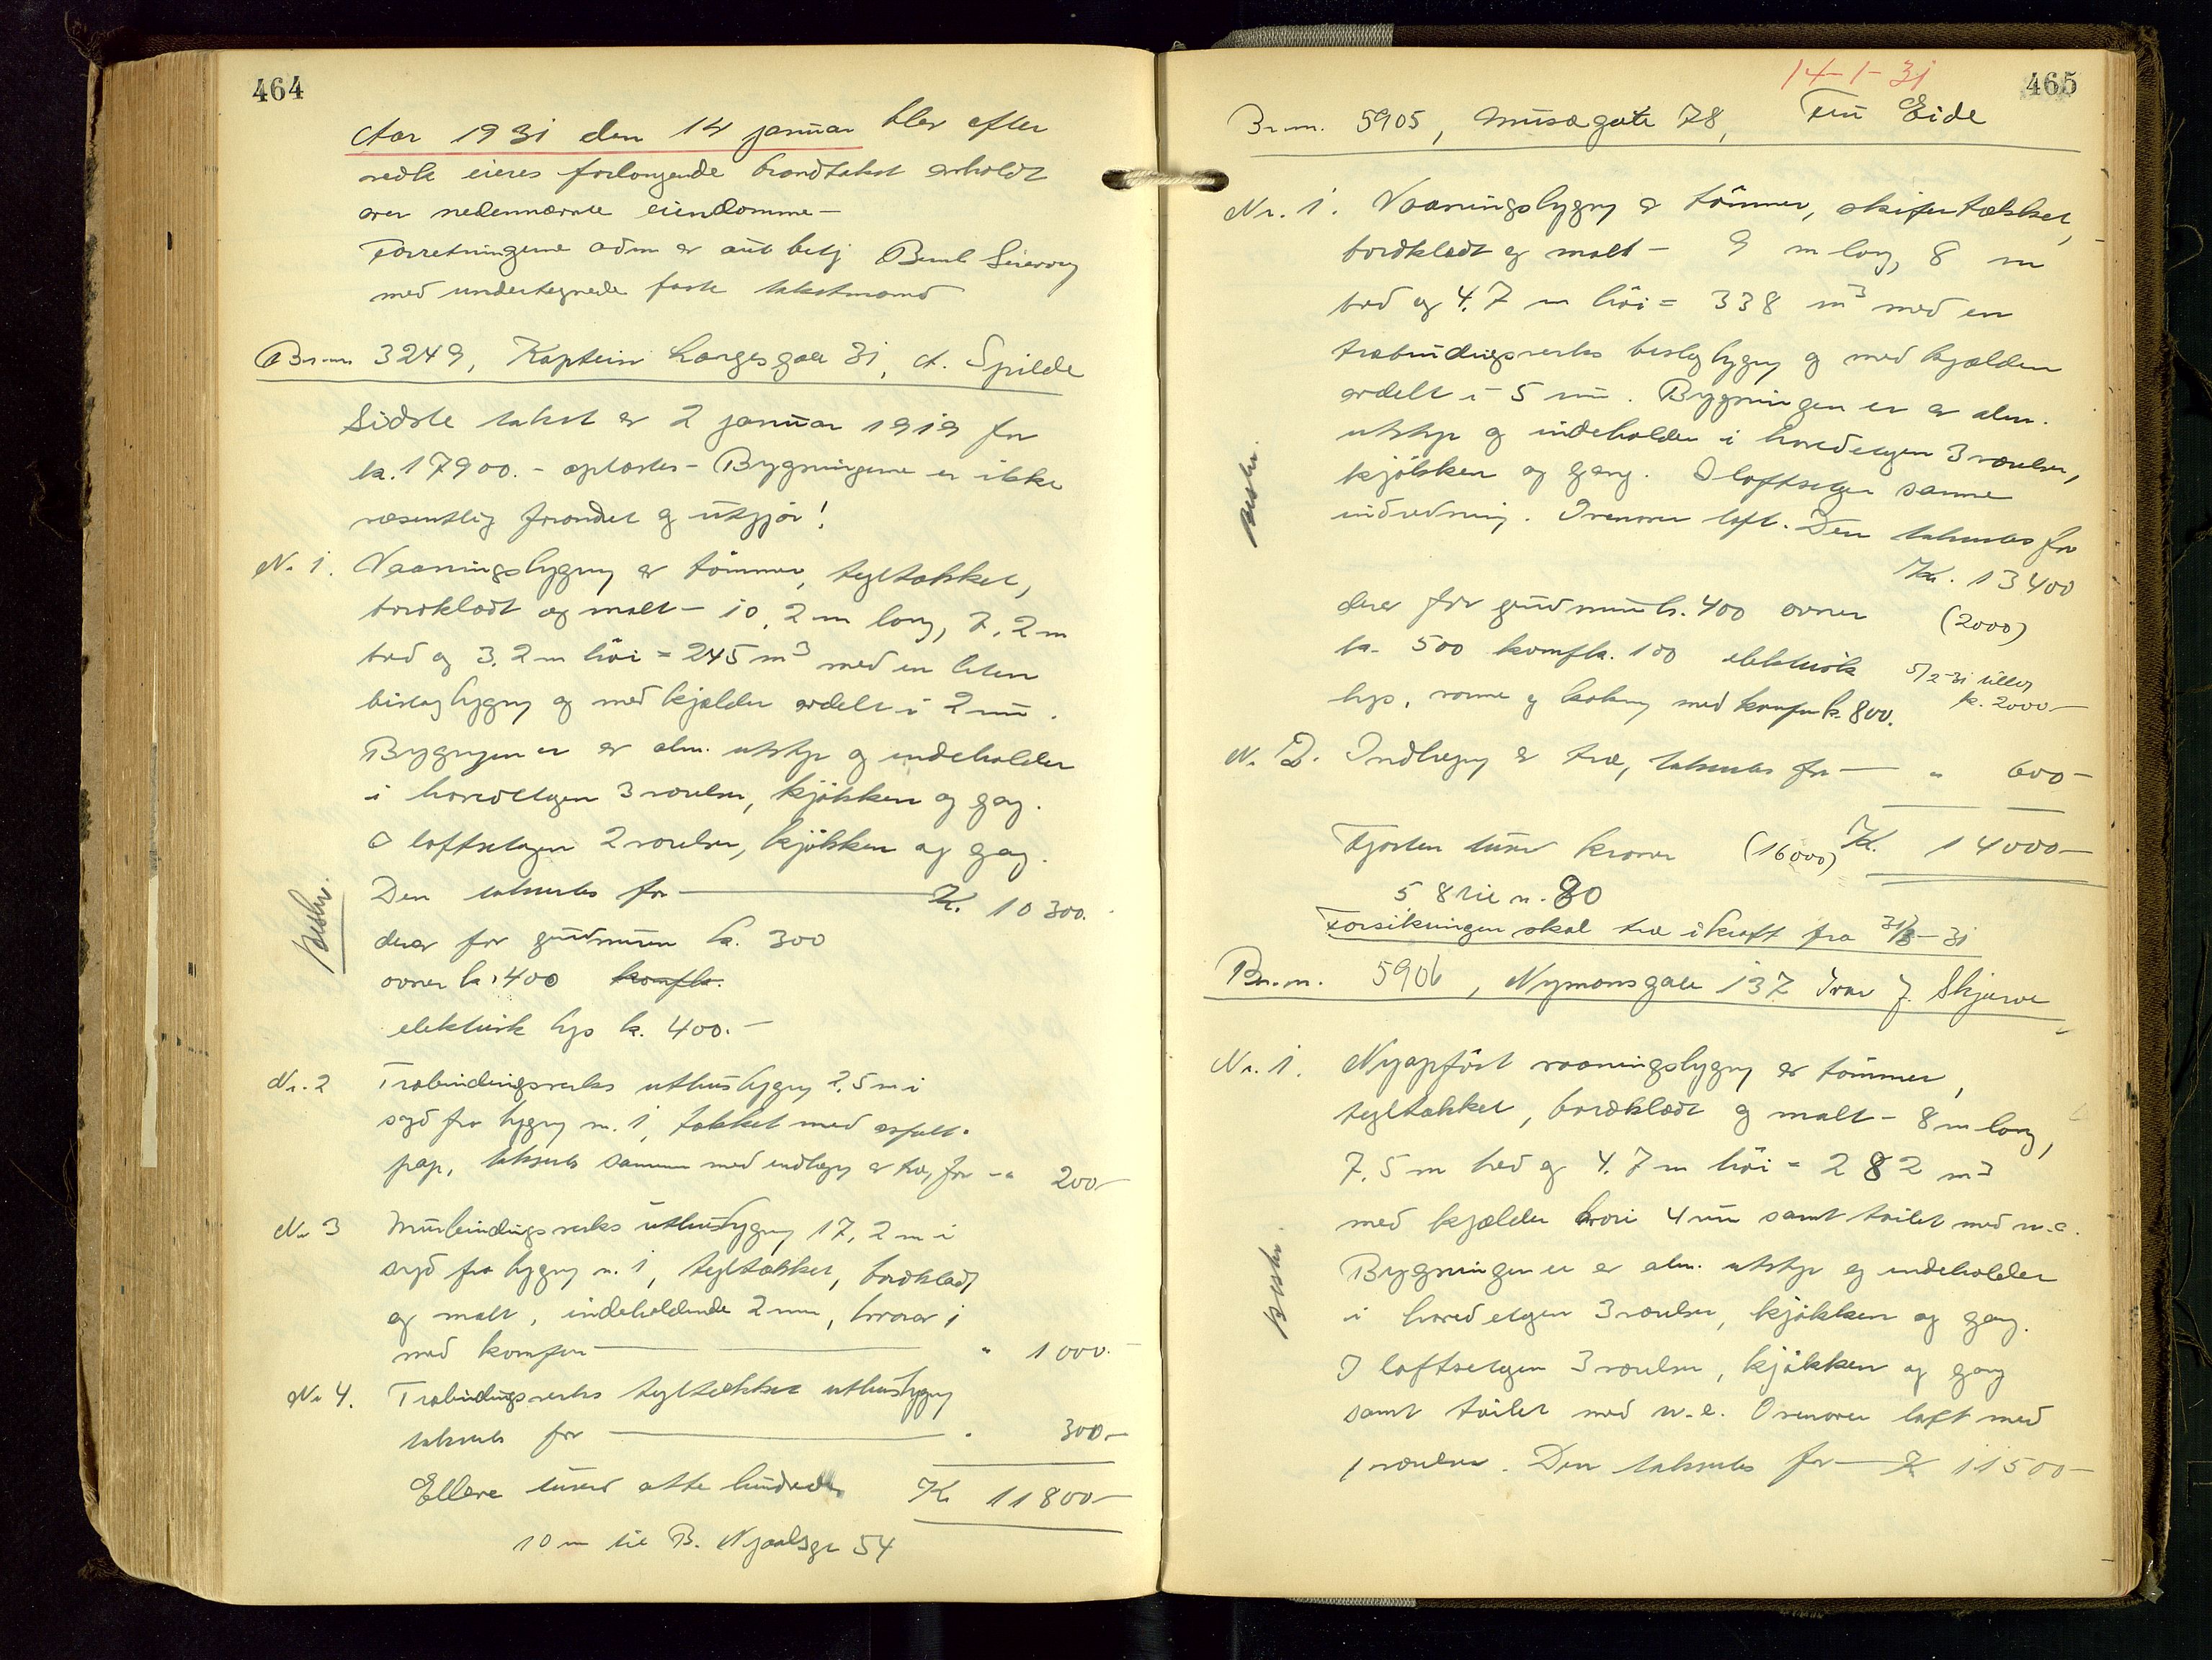 464
Aar 1931 den 14 januar blev efter
vedk eieres forlangende brandtakst avholdt
over nedennævnte eiendomme -
Forretningerne adm av aut betj Bernh
med undertegnede faste takstmænd
Br.nr. 3249, Kaptein Langes gate 31, A. Spilde
Sidste takst er 2 januar 1919 for
kr. 17900.- opløstes - Bygningerne er ikke
væsentlig forandret og utgjør!
Nr 1. Vaaningsbygng av tömmer, tegltækket,
bordklædt og malt - 10,2 m lang, 7,2 m
bred og 3.2 m höi = 245 m³ med en liten
bislagbygng og med kjælder avdelt i 2 rum.
Bygngen er av alm. utstyr og indeholder
i hovedetagen 3 værelser, kjökken og gang.
I loftsetagen 2 værelser, kjökken og gang.
Den takseres for Kr. 10300.
derav for grundmuren kr. 300
ovner kr. 400 komfkr.
elektrisk lys kr. 400.-
Beskr.
Nr. 2 Træbindingsverks uthusbygng 2,5 m i
syd fra bygng nr. 1, tækket med asfalt-
pap, takseres sammen med indhegng av træ, for - " 200-
Nr 3 Murbindingsverks uthusbygng 17,2 m i
syd fra bygng nr. 1, tegltækket, bordklædt
og malt, indeholdende 2 rum, hvorav 1
med komfur " 1000.-
Nr 4. Træbindingsverks tegltækket uthusbygng
takseres for " 300-
Elleve tusend otte hundrede Kr 11800-
10 m til B. Njaalsgt 54
14-1-31
465
Br.nr. 5905, Musægate 78, Fru Eide
Nr. 1. Vaaningsbygng av tömmer, skifertækket,
bordklædt og malt - 9 m lang, 8 m
bred og 4.7 m höi = 338 m³ med en
træbindingsverks bislagbygng og med kjælder
avdelt i 5 rum. Bygningen er av alm.
utstyr og indeholder i hovedetagen 3 værelser,
kjökken og gang. I loftsetagen samme
indredning. Ovenover loft. Den takseres for
Kr. 13400
derav for grundmur kr. 400 ovner (2000)
kr. 500 komfkr. 100 elektrisk 5/2-31 tillæg
lys, varme og kokng med komfur kr. 800. kr. 2000-
Beskr.
Nr. 2. Indhegng av træ, takseres for - " 600-
Fjorten tusend kroner (16000) Kr. 14000-
5 8 til n. 80
Forsikringen skal træ i kraft fra 31/3-31
Br.nr. 5906, Nymansgate 137 Ivar J. Skjerve
Nr. 1. Nyopfört vaaningsbygng av tömmer,
tegltækket, bordklædt og malt - 8 m lang,
7.5 m bred og 4.7 m höi = 282 m³
med kjælder hvori 4 rum samt toilet med w.c.
Bygningen er av alm. utstyr og indeholder
i hovedetagen 3 værelser, kjökken og gang.
I loftsetagen 3 værelser, kjökken og gang
samt toilet med w.c. Ovenover loft med
1 værelse. Den takseres for - Kr 11500-
Beskr.